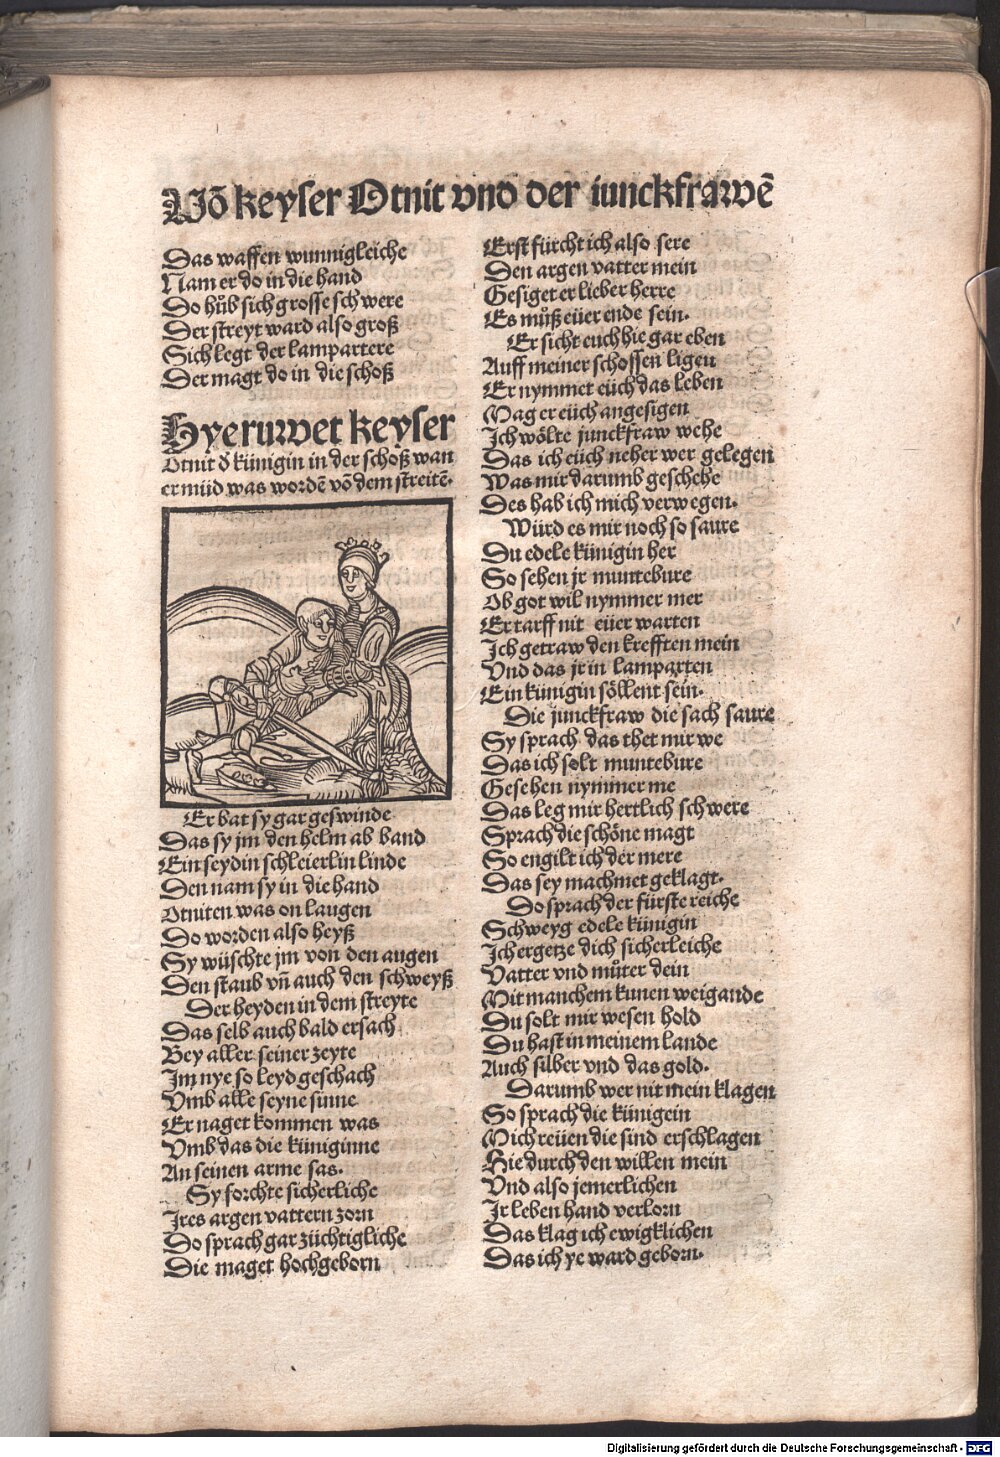 Vō keyser Otnit vnd der junckfrawē
Das waffen wunnigleiche
Nam er do in die hand
Do hůb sich grosse schwere
Der streyt ward also groß
Sich legt der lampartere
Der magt do in die schoß
Hye ruwet keyser
Otnit d̕ künigin in der schoß wan
er müd was wordē vō dem streitē.
Er bat sy gar geswinde
Das sy jm den helm ab band
Ein seydin schleierlin linde
Den nam sy in die hand
Otniten was on laugen
Do worden also heyß
Sy wüschte jm von den augen
Den staub vñ auch den schweyß
Der heyden in dem streyte
Das selb auch bald ersach
Bey aller seiner zeyte
Im nye so leyd geschach
Vmb alle seyne sinne
Er naget kommen was
Vmb das die küniginne
An seinen arme sas.
Sy forchte sicherliche
Ires argen vattern zorn
Do sprach gar züchtigliche
Die maget hochgeborn
Erst fürcht ich also sere
Den argen vatter mein
Gesiget er lieber herre
Es můß eüer ende sein.
Er sicht euch hie gar eben
Auff meiner schossen ligen
Er nymmet eüch das leben
Mag er eüch angesigen
Ich wölte junckfraw wehe
Das ich eüch neher wer gelegen
Was mir darumb geschehe
Des hab ich mich verwegen.
Würd es mir noch so saure
Du edele künigin her
So sehen jr muntebure
Ob got wil nymmer mer
Er tarff nit eüer warten
Ich getraw den krefften mein
Vnd das jr in lamparten
Ein künigin söllent sein.
Die junckfraw die sach saure
Sy sprach das thet mir we
Das ich solt muntebure
Gesehen nymmer me
Das leg mir hertlich schwere
Sprach die schöne magt
So engilt ich der mere
Das sey machmet geklagt.
Do sprach der fürste reiche
Schweyg edele künigin
Ich ergetze dich sicherleiche
Vatter vnd můter dein
Mit manchem kunen weigande
Du solt mir wesen hold
Du hast in meinem lande
Auch silber vnd das gold.
Darumb wer nit mein klagen
So sprach die künigein
Mich reüen die sind erschlagen
Hie durch den willen mein
Vnd also jemerlichen
Ir leben hand verlorn
Das klag ich ewigklichen
Das ich ye ward geborn.
Digitalisierung gefördert durch die Deutsche Forschungsgemeinschaft - DFG